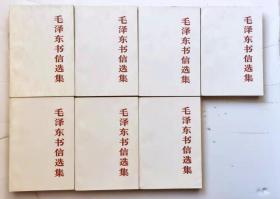 毛泽东书信选集
毛泽东书信选集
毛泽东书信选集
毛泽东书信选集
毛泽东书信选集
毛泽东书信选集
毛泽东书信选集